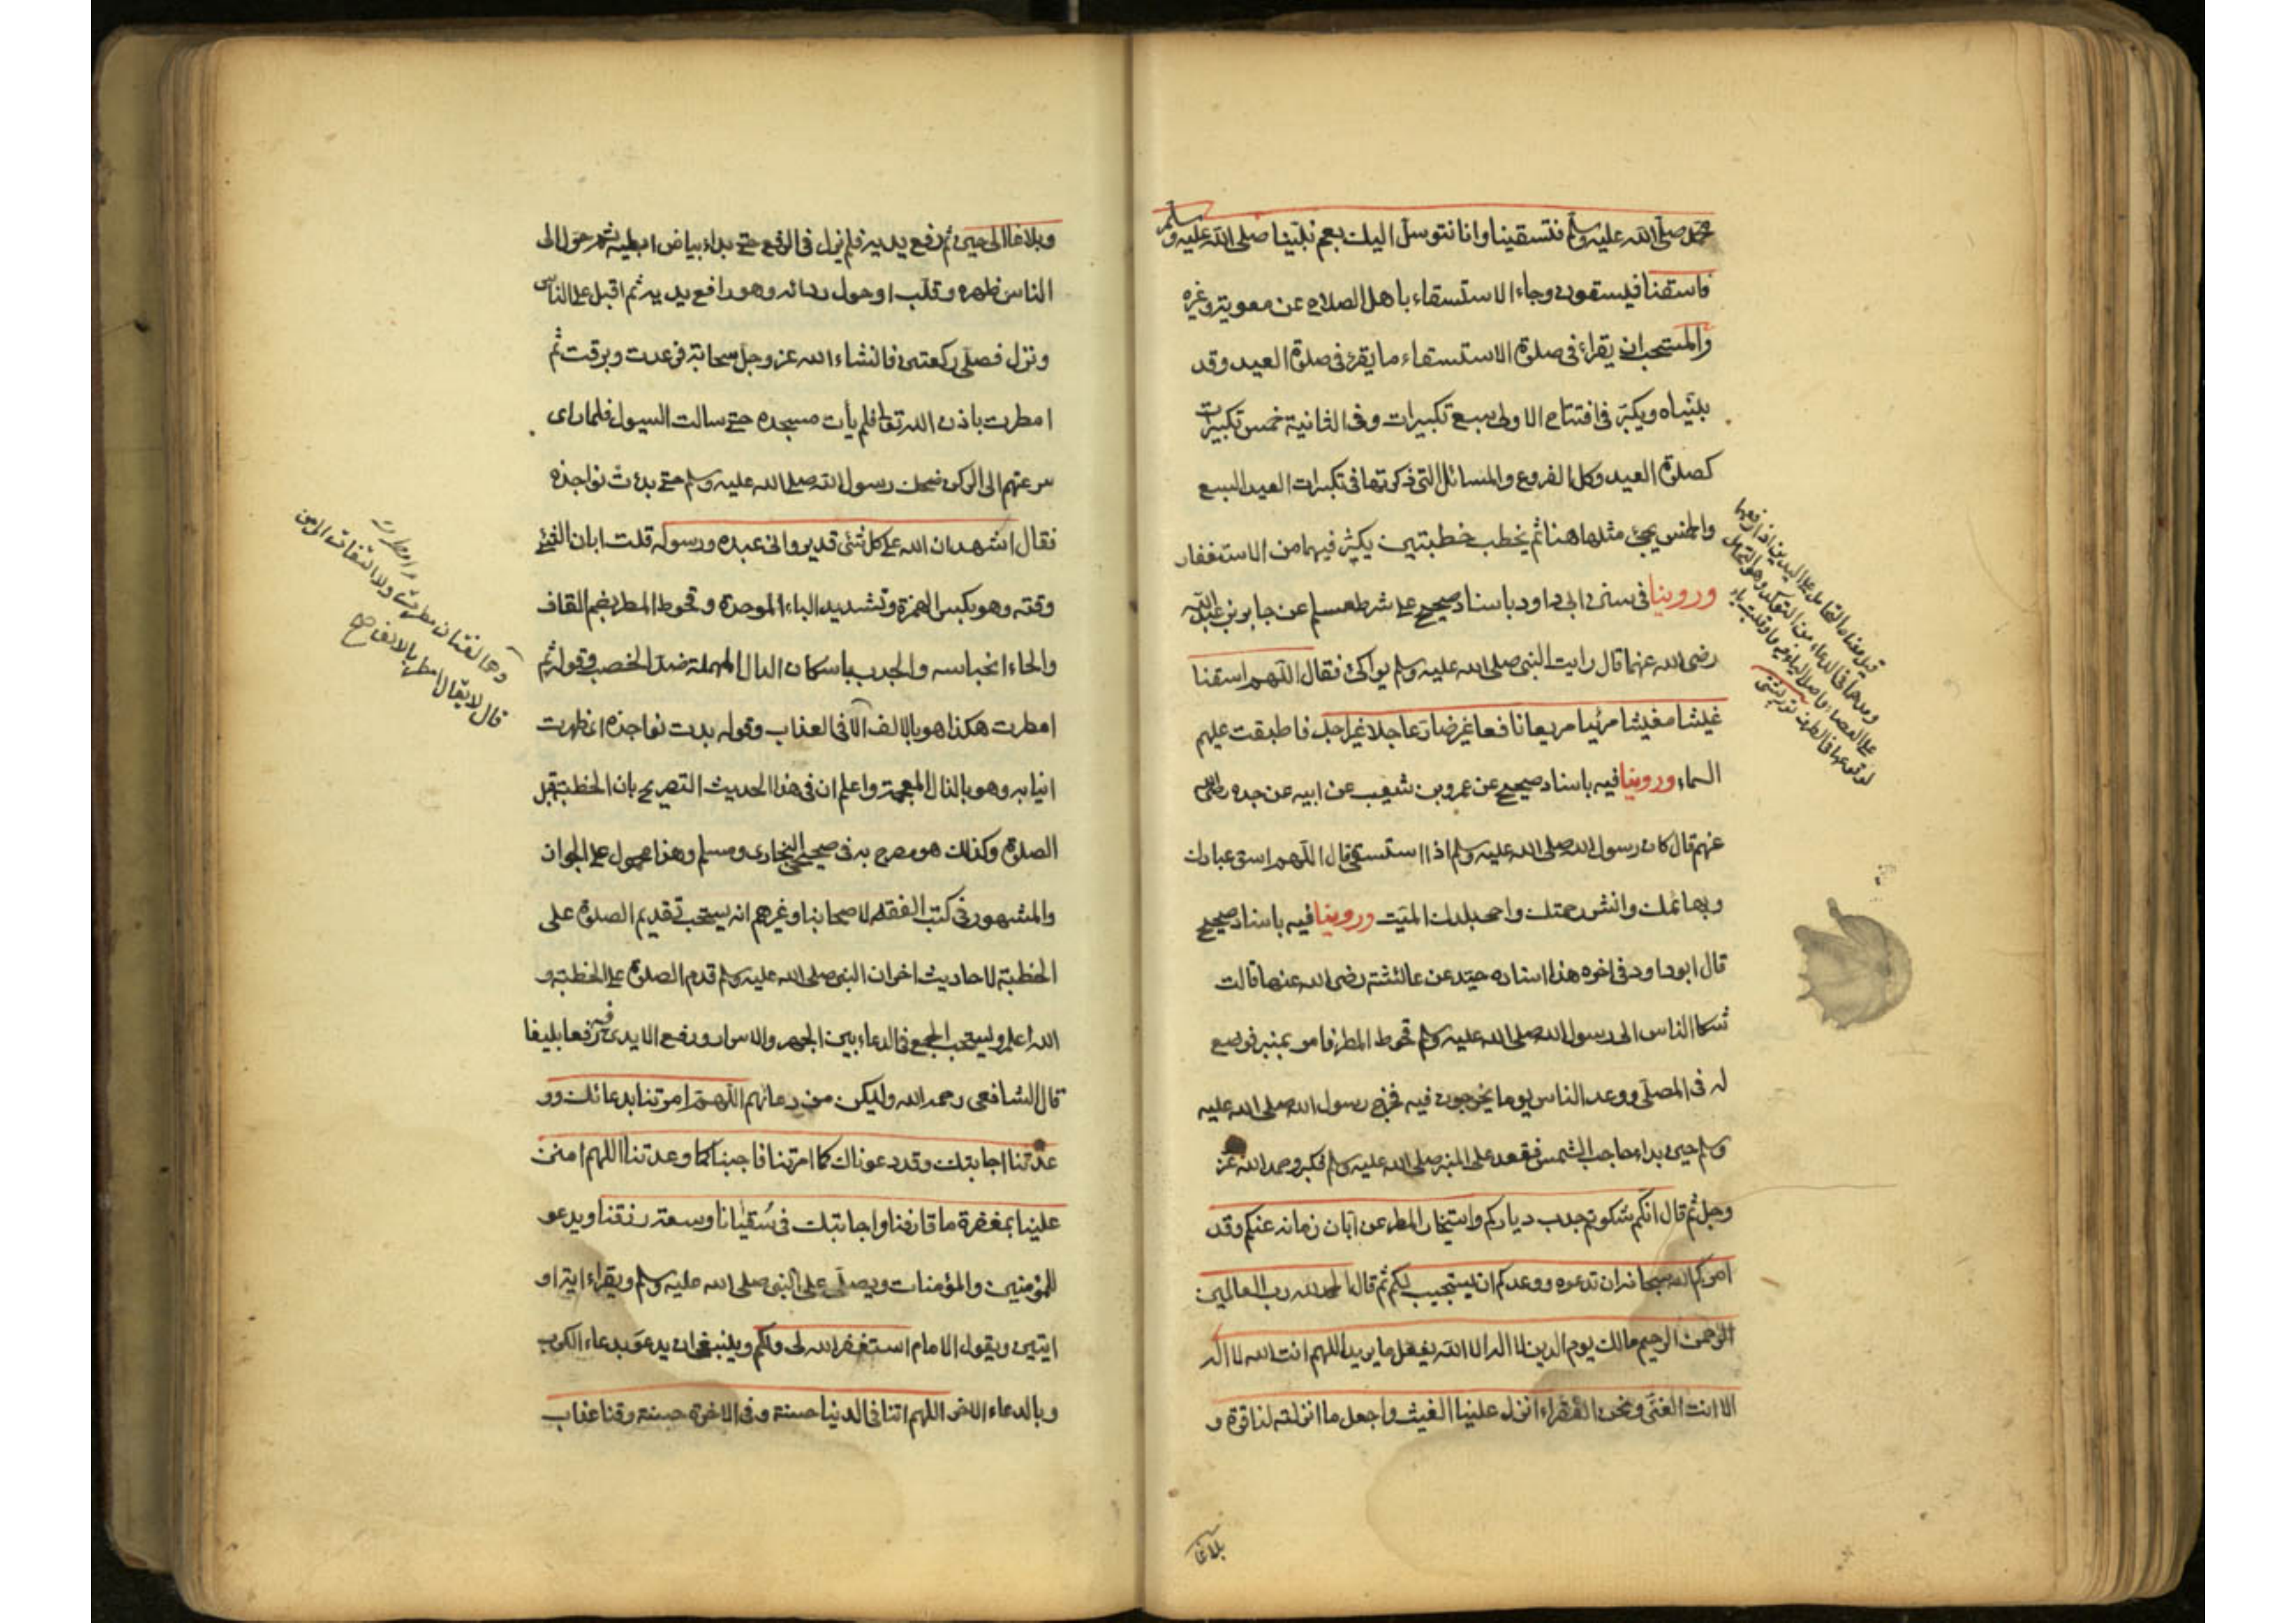 محمد صلى الله عليه وسلم فتسقينا وانا نتوسل اليك بعم نبينا صلى الله عليه وسلم
فاسقنا فيسقون وجاء الاستسقاء باهل الصلاح عن معوية وغيره
والمستحب ان يقراء في صلوة الاستسقاء ما يقرء في صلوة العيد وقد
بيناه ويكبر في افتتاح الاولى سبع تكبيرات وفي الثانية خمس تكبيرات
كصلوة العيد وكل الفروع والمسائل التي ذكرتها في تكبيرات العيد السبع
والخمس يجئ مثلها هنا ثم يخطب خطبتين يكثر فيهما من الاستغفار
وروينا في سنن ابي داود باسناد صحيح على شرط مسلم عن جابر بن عبد الله
رضي الله عنهما قال رايت النبي صلى الله عليه وسلم يواكئ فقال اللهم اسقنا
غيثا مغيثا مرئيا مريعا نافعا غير ضار عاجلا غير اجل فاطبقت عليهم
السماء وروينا فيه باسناد صحيح عن عمرو بن شعيب عن ابيه عن جده رضي الله
عنهم قال كان رسول الله صلى الله عليه وسلم اذا استسقى قال اللهم اسق عبادك
وبهائمك وانشر رحمتك واحي بلدك الميت وروينا فيه باسناد صحيح
قال ابو داود في اخره هذا اسناده جيد عن عائشة رضي الله عنها قالت
شكا الناس الى رسول الله صلى الله عليه وسلم قحوط المطر فامر بمنبر فوضع
له في المصلى ووعد الناس يوما يخرجون فيه فخرج رسول الله صلى الله عليه
وسلم حين بداء حاجب الشمس فقعد على المنبر صلى الله عليه وسلم فكبر وحمد الله عز
وجل ثم قال انكم شكوتم جدب دياركم واستيخار المطر عن ابان زمانه عنكم وقد
امركم الله سبحانه ان تدعوه ووعدكم ان يستجيب لكم ثم قال الحمد لله رب العالمين
الرحمن الرحيم مالك يوم الدين لا اله الا الله يفعل ما يريد اللهم انت الله لا اله
الا انت الغني ونحن الفقراء انزل علينا الغيث واجعل ما انزلته لنا قوة و
بلاغا
وبلاغا الى حين ثم رفع يديه فلم يزل في الرفع حتى بداء بياض ابطيه ثم حول الى
الناس ظهره وقلب او حول ردائه وهو رافع يديه ثم اقبل على الناس
ونزل فصلى ركعتين فانشاء الله عز وجل سحابة فرعدت وبرقت ثم
امطرت باذن الله تعا فلم يأت مسجده حتى سالت السيول فلما راى
سرعتهم الى الركن ضحك رسول الله صلى الله عليه وسلم حتى بدءت نواجذه
فقال اشهد ان الله على كل شئ قدير واني عبده ورسوله قلت ابان الشئ
وقته وهو بكسر الهمزة وتشديد الباء الموحدة وقحوط المطر بضم القاف
والحاء انحباسه والجدب باسكان الدال المهملة ضد الخصب وقوله ثم
امطرت هكذا هو بالالف الا في العذاب وقوله بدت نواجذه اي ظهرت
انيابه وهو بالذال المعجمة واعلم ان في هذا الحديث التصريح بان الخطبة قبل
الصلوة وكذلك هو مصرح به في صحيحي البخاري ومسلم وهذا محمول على الجواز
والمشهور في كتب الفقه لاصحابنا وغيرهم انه يستحب تقديم الصلوة على
الخطبة لاحاديث اخر ان النبي صلى الله عليه وسلم قدم الصلوة على الخطبة و
الله اعلم ويستحب الجمع في الدعاء بين الجهر والاسرار ورفع الايدي فيه رفعا بليغا
قال الشافعي رحمه الله وليكن من دعائهم اللهم امرتنا بدعائك وو
عدتنا اجابتك وقد دعوناك كما امرتنا فاجبنا كما وعدتنا اللهم امنن
علينا بمغفرة ما قارفنا واجابتك في سقيانا وسعة رزقنا ويدعو
للمؤمنين والمؤمنات ويصلي على النبي صلى الله عليه وسلم ويقراء اية او
ايتين ويقول الامام استغفر الله لي ولكم وينبغي ان يدعو بدعاء الكرب
وبالدعاء الاخر اللهم اتنا في الدنيا حسنة وفي الاخرة حسنة وقنا عذاب